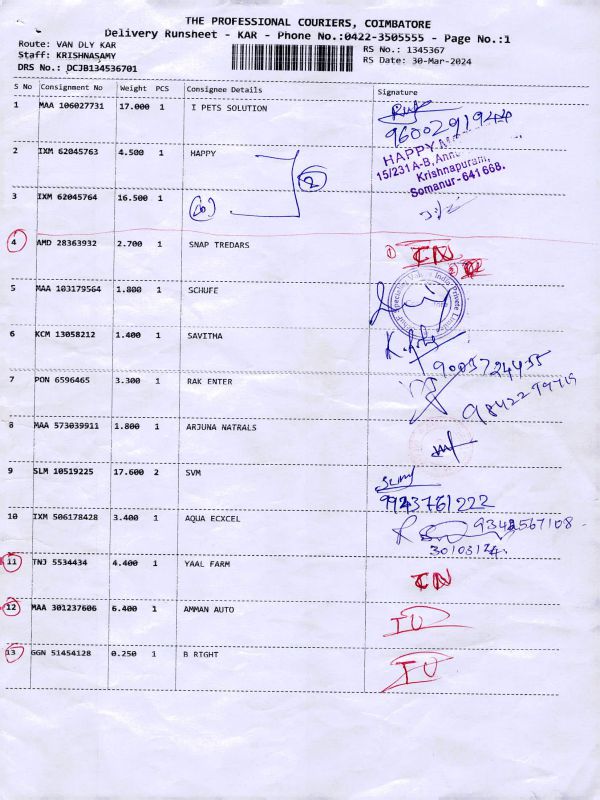 THE PROFESSIONAL COURIERS, COIMBATORE
Delivery Runsheet - KAR - Phone No.:0422-3505555 - Page No.:1
Route: VAN DLY KAR
Staff: KRISHNASAMY
DRS No.: DCJB134536701
RS No.: 1345367
RS Date: 30-Mar-2024
S No Consignment No Weight PCS Consignee Details Signature
1 MAA 106027731 17.000 1 I PETS SOLUTION
9600291944
2 IXM 62045763 4.500 1 HAPPY
2
HAPPY
15/231 A-B,
Krishnapuram,
Somanur - 641 668.
3 IXM 62045764 16.500 1
4 AMD 28363932 2.700 1 SNAP TREDARS
CN
5 MAA 103179564 1.800 1 SCHUFE
6 KCM 13058212 1.400 1 SAVITMA
9003724455
7 PON 6596465 3.300 1 RAK ENTER
8 MAA 573039911 1.800 1 ARJUNA NATRALS
9 SLM 10519225 17.600 2 SVM
9943761222
10 IXM 506178428 3.400 1 AQUA ECXCEL
30/03/24.
11 TNJ 5534434 4.400 1 YAAL FARM
CN
12 MAA 301237606 6.400 1 AMMAN AUTO
IU
13 GGN 51454128 0.250 1 B RIGHT
IU